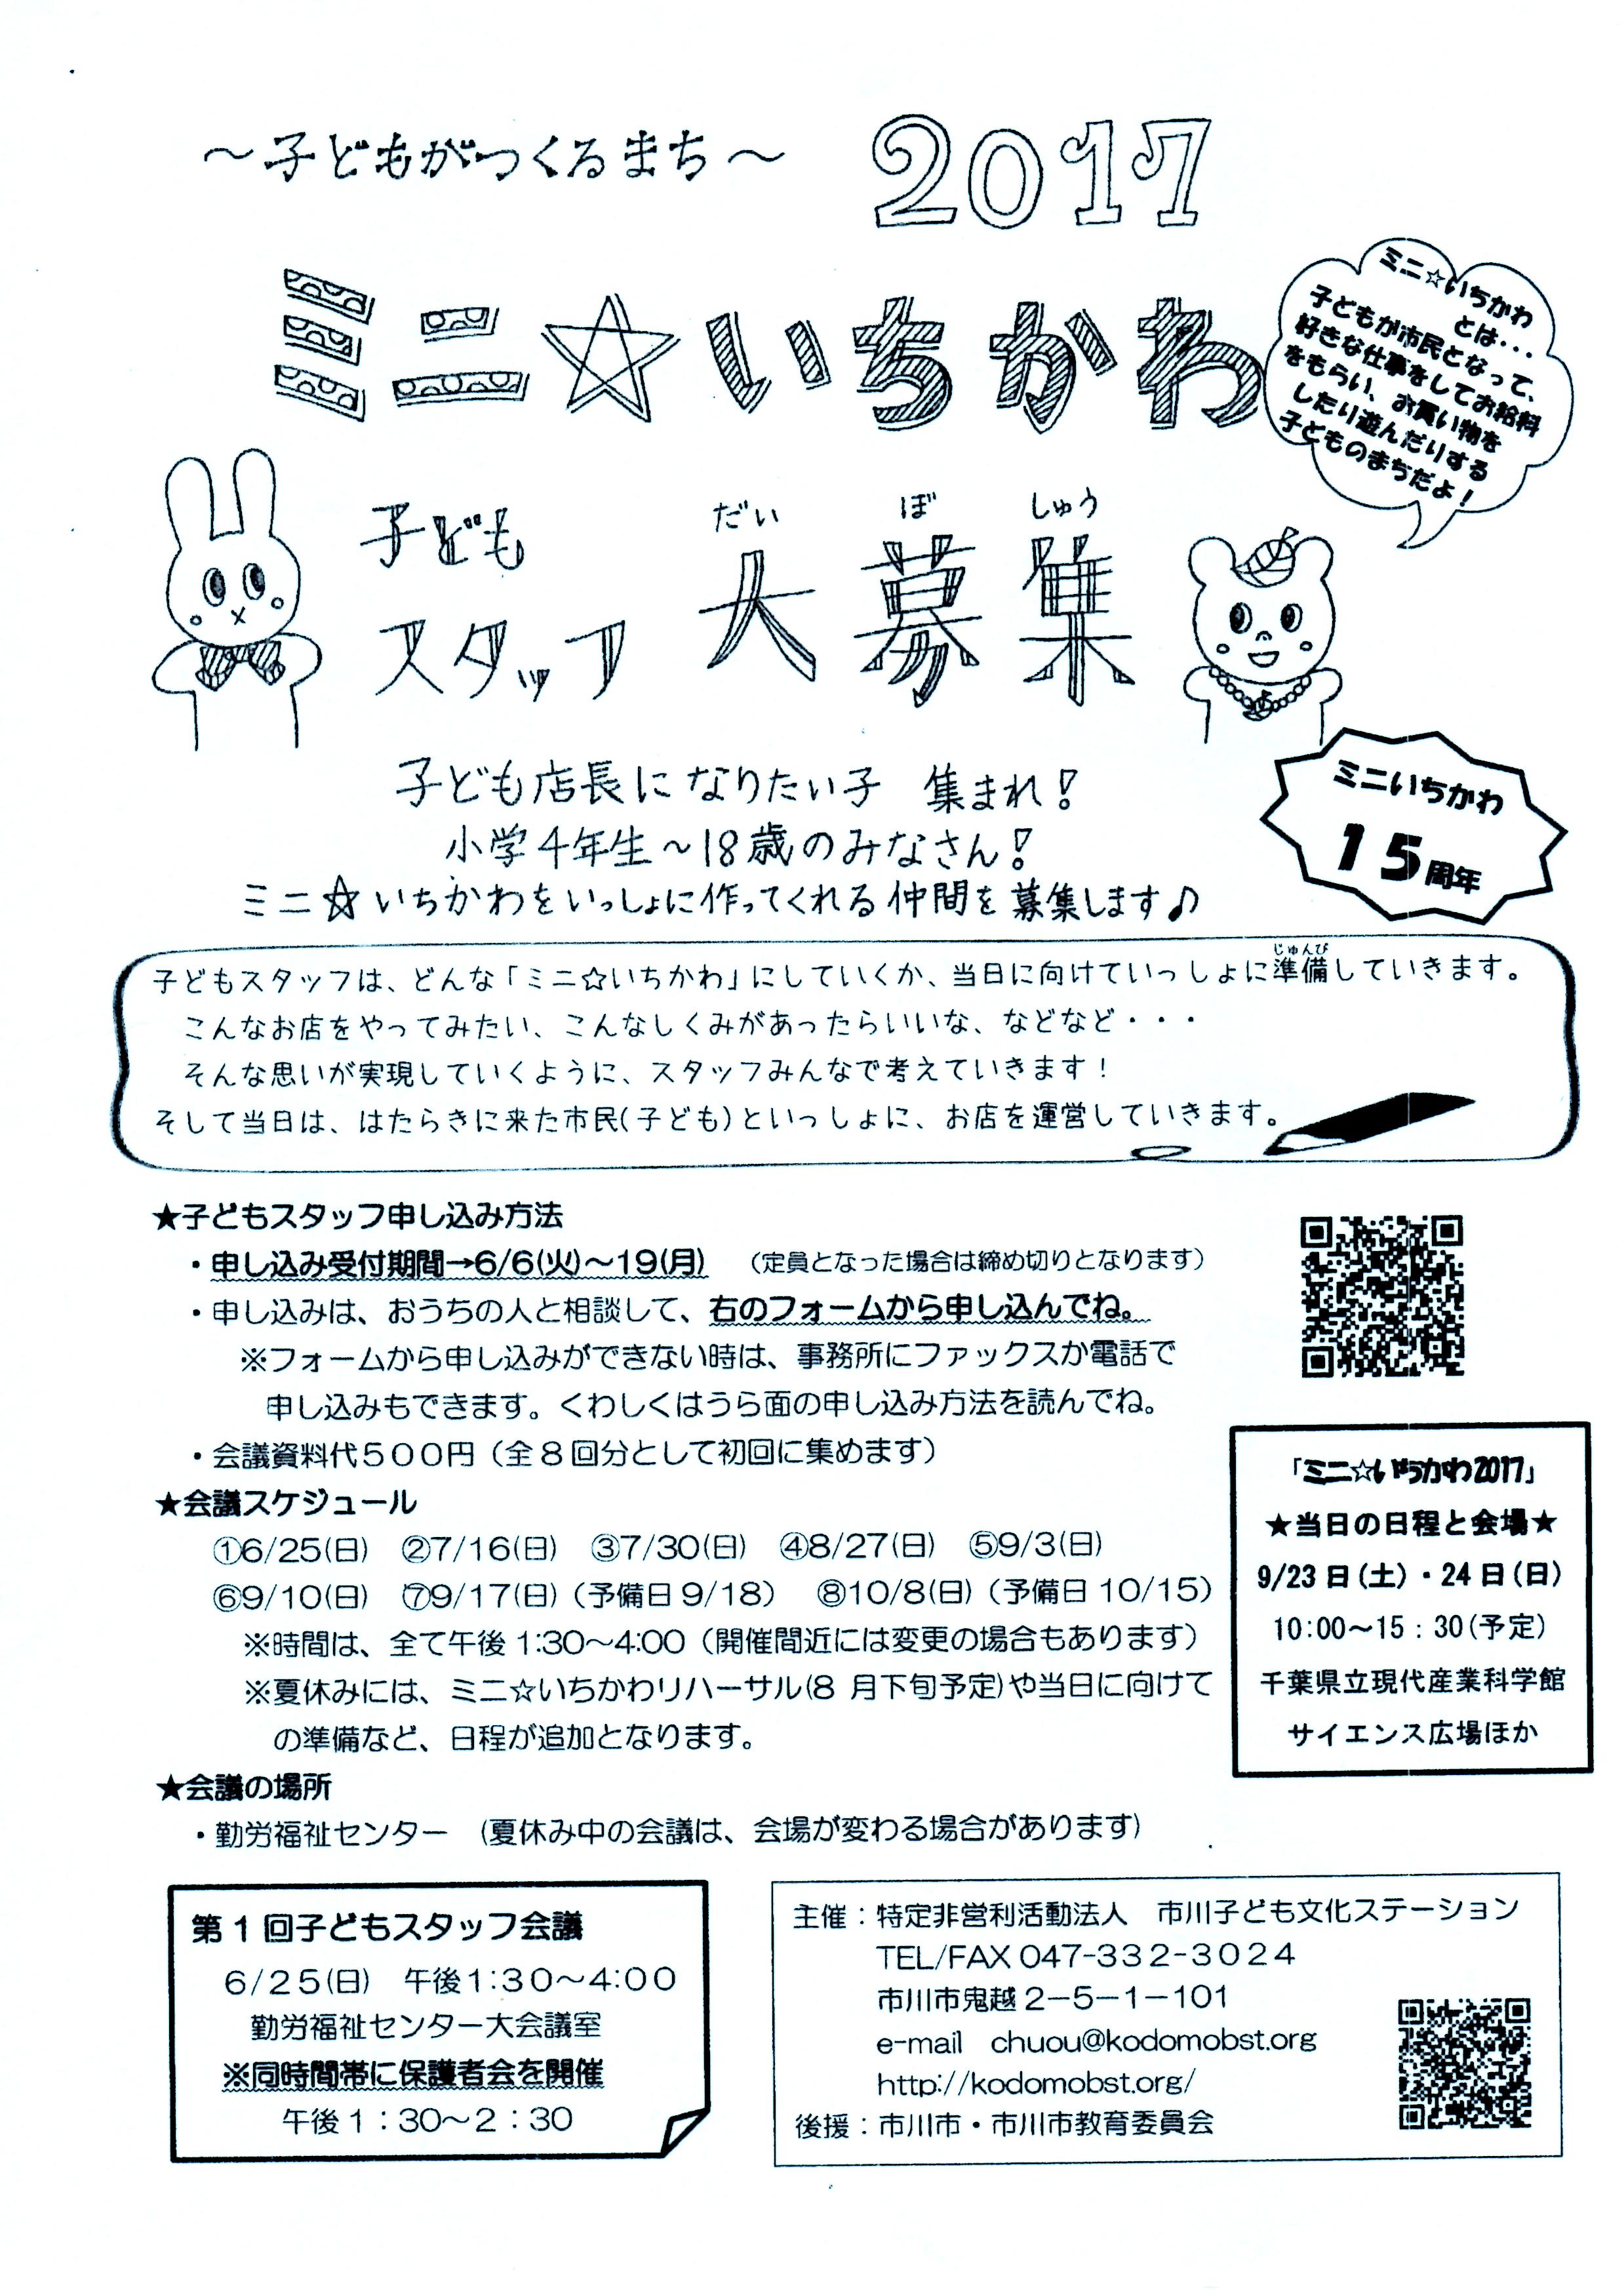 ～子どもがつくるまち～ 2017
ミニ☆いちかわ
ミニ☆いちかわ
とは・・・
子どもが市民となって、
好きな仕事をしてお給料
をもらい、お買い物を
したり遊んだりする
子どものまちだよ！
子ども
スタッフ
だい ぼ しゅう
大募集
子ども店長になりたい子 集まれ！
小学4年生～18歳のみなさん！
ミニ☆いちかわをいっしょに作ってくれる仲間を募集します♪
ミニいちかわ
１５周年
じゅんび
子どもスタッフは、どんな「ミニ☆いちかわ」にしていくか、当日に向けていっしょに準備していきます。
こんなお店をやってみたい、こんなしくみがあったらいいな、などなど・・・
そんな思いが実現していくように、スタッフみんなで考えていきます！
そして当日は、はたらきに来た市民(子ども)といっしょに、お店を運営していきます。
★子どもスタッフ申し込み方法
・申し込み受付期間→6/6(火)～19(月) （定員となった場合は締め切りとなります）
・申し込みは、おうちの人と相談して、右のフォームから申し込んでね。
※フォームから申し込みができない時は、事務所にファックスか電話で
申し込みもできます。くわしくはうら面の申し込み方法を読んでね。
・会議資料代５００円（全８回分として初回に集めます）
★会議スケジュール
①6/25(日) ②7/16(日) ③7/30(日) ④8/27(日) ⑤9/3(日)
⑥9/10(日) ⑦9/17(日)（予備日 9/18） ⑧10/8(日)（予備日 10/15）
※時間は、全て午後 1:30～4:00（開催間近には変更の場合もあります）
※夏休みには、ミニ☆いちかわリハーサル(8 月下旬予定)や当日に向けて
の準備など、日程が追加となります。
★会議の場所
・勤労福祉センター （夏休み中の会議は、会場が変わる場合があります）
「ミニ☆いちかわ2017」
★当日の日程と会場★
9/23 日(土)・24 日(日)
10:00～15：30(予定)
千葉県立現代産業科学館
サイエンス広場ほか
第１回子どもスタッフ会議
６/２５(日) 午後１:３０～４:００
勤労福祉センター大会議室
※同時間帯に保護者会を開催
午後１：３０～２：３０
主催：特定非営利活動法人 市川子ども文化ステーション
TEL/FAX 047-332-３０２４
市川市鬼越２－５－１－１０１
e-mail chuou@kodomobst.org
http://kodomobst.org/
後援：市川市・市川市教育委員会